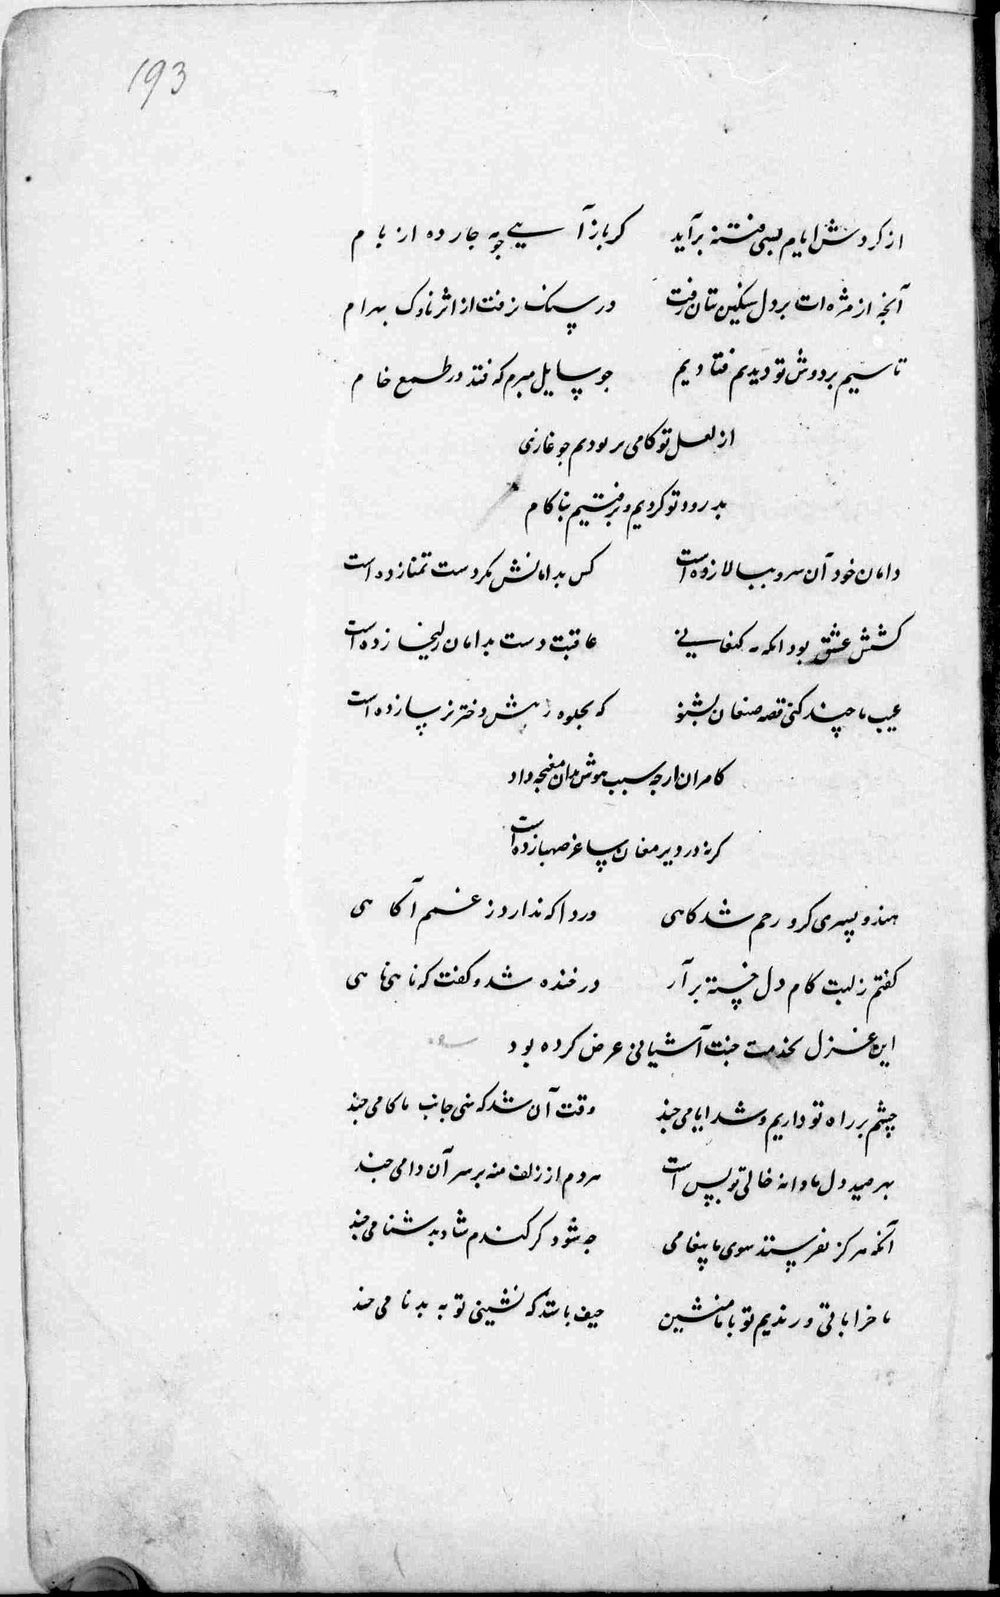 193
از کردش ایام بسی فتنه برآید کر باز آیی چه چارده از بام
آنچه از مژه ات بر دل سنکین بتان رفت در سنک نرفت از اثر ناوک بهرام
تا سیم بر دوش تو دیدیم فتادیم جو سایل مبرم که فتد در طمع خام
از لعل تو کامی نربودیم جو غازی
بدرود تو کردیم و برفتیم بناکام
دامان خود آن سرو ببالا زده است کس بدامانش مکر دست تمنا زده است
کشش عشق بود آنکه مه کنعانی عاقبت دست بدامان زلیخا زده است
عیب ما چند کنی قصه صنعان بشنو که بجلوه رهش دختر ترسا زده است
کامران ارچه سبب هوش بدان مغبچه داد
کرنه در دیر مغان ساغر صهبا زده است
هندو پسری کرو رحم شد کاهی دردا که ندارد ز غمم آکاهی
کفتم ز لبت کام دل خسته برآر در خنده شد و کفت که ناهی ناهی
این غزل بخدمت جنت آشیانی عرض کرده بود
چشم بر راه تو داریم و شد ایامی چند وقت آن شد که نهی جانب ما کامی چند
بهر صید دل ما دانه خالی تو بس است مردم از زلف منه بر سر آن دامی چند
آنکه هرکز نفرستد سوی ما پیغامی چه شود کر کندم شاد بدشنامی چند
ما خراباتی و رندیم تو با ما منشین حیف باشد که نشینی تو به بدنامی چند